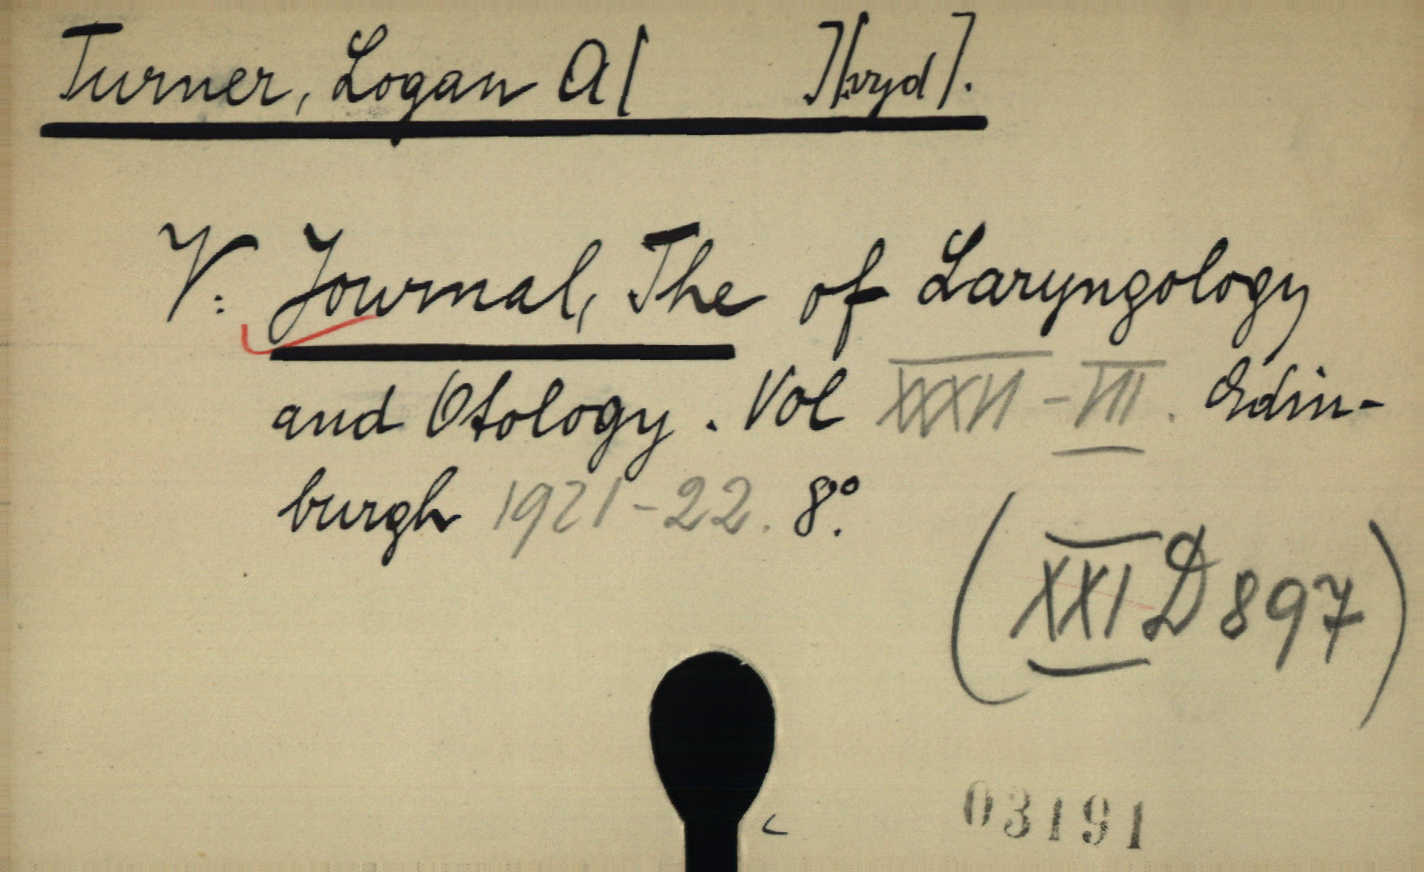 Turner, Logan A[ ][wyd].
V: Journal, The of Laryngology
and Otology. Vol XXXVI-VII. Edin-
burgh 1921-22. 8°.
(XXI D 897)
03191